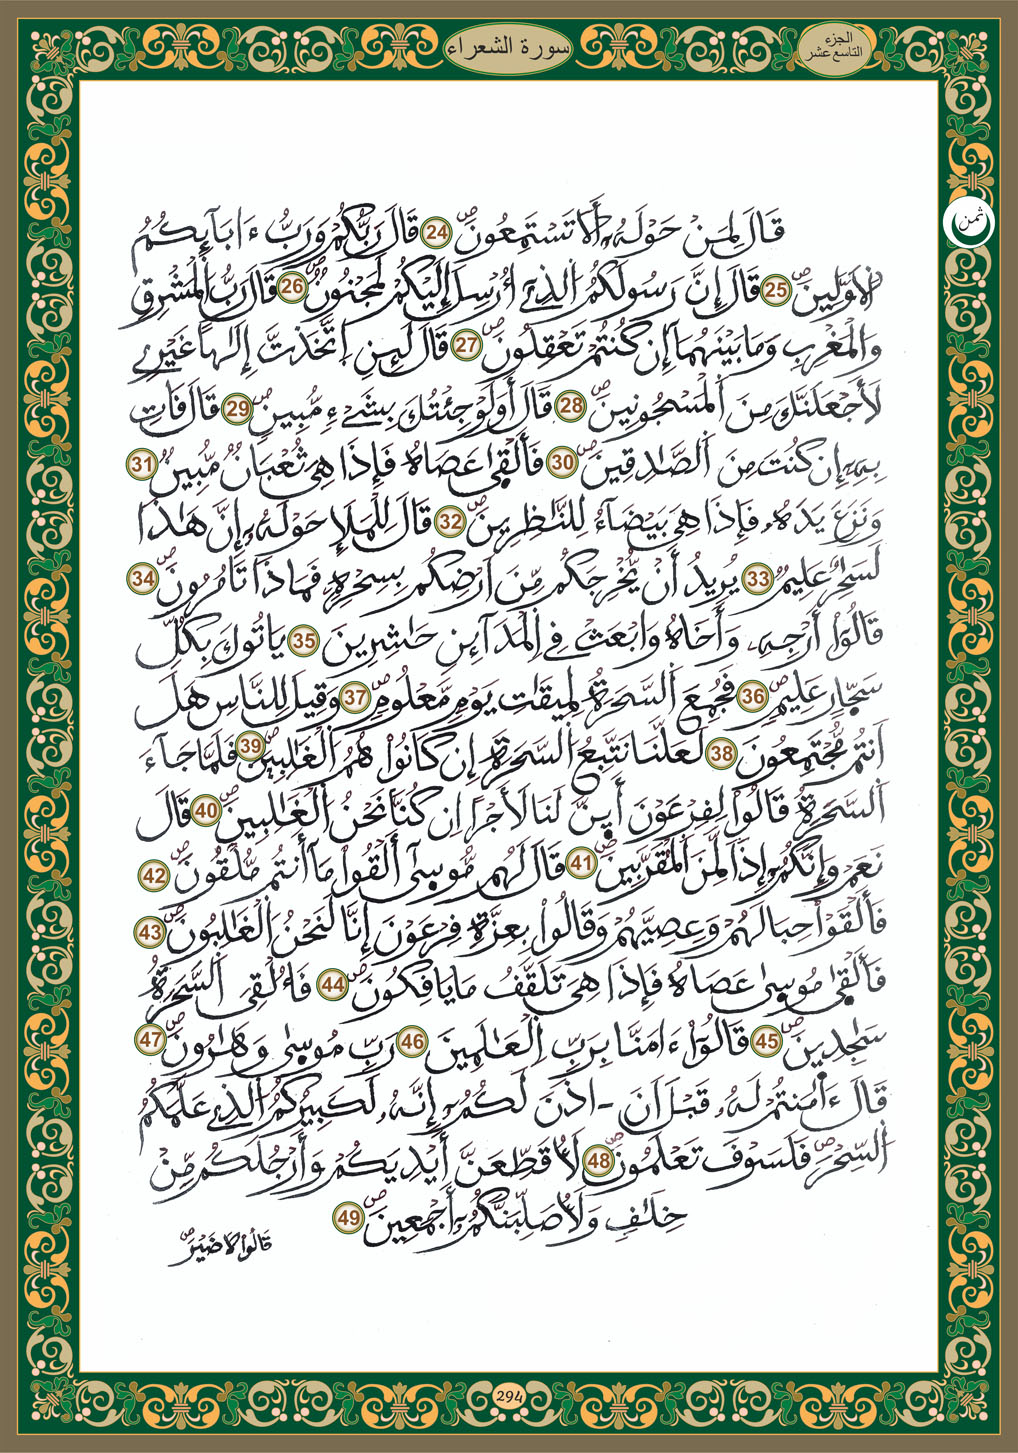 سورة الشعراء
الجزء
التاسع عشر
ثمن
قَالَ لِمَنْ حَوْلَهُۥٓ أَلَا تَسْتَمِعُونَۖ 24 قَالَ رَبُّكُمْ وَرَبُّ ءَابَآئِكُمُ
اُ۬لَاوَّلِينَۖ 25 قَالَ إِنَّ رَسُولَكُمُ اُ۬لذِےٓ أُرْسِلَ إِلَيْكُمْ لَمَجْنُونٞۖ 26 قَالَ رَبُّ اُ۬لْمَشْرِقِ
وَالْمَغْرِبِ وَمَا بَيْنَهُمَآ إِن كُنتُمْ تَعْقِلُونَۖ 27 قَالَ لَئِنِ اِ۪تَّخَذتَّ إِلَٰهاً غَيْرِے
لَأَجْعَلَنَّكَ مِنَ اَ۬لْمَسْجُونِينَۖ 28 قَالَ أَوَلَوْ جِئْتُكَ بِشَےْءٖ مُّبِينٖۖ 29 قَالَ فَاتِ
بِهِۦٓ إِن كُنتَ مِنَ اَ۬لصَّٰدِقِينَۖ 30 فَأَلْقَىٰ عَصَاهُ فَإِذَا هِيَ ثُعْبَانٞ مُّبِينٞۖ 31
وَنَزَعَ يَدَهُۥ فَإِذَا هِيَ بَيْضَآءُ لِلنَّٰظِرِينَۖ 32 قَالَ لِلْمَلَإِ حَوْلَهُۥٓ إِنَّ هَٰذَا
لَسَٰحِرٌ عَلِيمٞ 33 يُرِيدُ أَنْ يُّخْرِجَكُم مِّنَ اَرْضِكُم بِسِحْرِهِۦ فَمَاذَا تَامُرُونَۖ 34
قَالُوٓاْ أَرْجِهِۦ وَأَخَاهُ وَابْعَثْ فِے اِ۬لْمَدَآئِنِ حَٰشِرِينَ 35 يَاتُوكَ بِكُلِّ
سَحّ۪ارٍ عَلِيمٖۖ 36 فَجُمِعَ اَ۬لسَّحَرَةُ لِمِيقَٰتِ يَوْمٖ مَّعْلُومٖۖ 37 وَقِيلَ لِلنَّاسِ هَلَ
اَنتُم مُّجْتَمِعُونَ 38 لَعَلَّنَا نَتَّبِعُ اُ۬لسَّحَرَةَ إِن كَانُواْ هُمُ اُ۬لْغَٰلِبِينَۖ 39 فَلَمَّا جَآءَ
اَ۬لسَّحَرَةُ قَالُواْ لِفِرْعَوْنَ أَئِنَّ لَنَا لَأَجْراً اِن كُنَّا نَحْنُ اُ۬لْغَٰلِبِينَۖ 40 قَالَ
نَعَمْ وَإِنَّكُمُۥٓ إِذاٗ لَّمِنَ اَ۬لْمُقَرَّبِينَۖ 41 قَالَ لَهُم مُّوسَىٰٓ أَلْقُواْ مَآ أَنتُم مُّلْقُونَۖ 42
فَأَلْقَوْاْ حِبَالَهُمْ وَعِصِيَّهُمْ وَقَالُواْ بِعِزَّةِ فِرْعَوْنَ إِنَّا لَنَحْنُ اُ۬لْغَٰلِبُونَۖ 43
فَأَلْقَىٰ مُوسَىٰ عَصَاهُ فَإِذَا هِيَ تَلَقَّفُ مَا يَافِكُونَۖ 44 فَأُلْقِيَ اَ۬لسَّحَرَةُ
سَٰجِدِينَۖ 45 قَالُوٓاْ ءَامَنَّا بِرَبِّ اِ۬لْعَٰلَمِينَ 46 رَبِّ مُوسَىٰ وَهَٰرُونَۖ 47
قَالَ ءَا۬مَنتُمْ لَهُۥ قَبْلَ أَنَ اٰذَنَ لَكُمُۥٓ إِنَّهُۥ لَكَبِيرُكُمُ اُ۬لذِے عَلَّمَكُمُ
اُ۬لسِّحْرَۖ فَلَسَوْفَ تَعْلَمُونَۖ 48 لَأُقَطِّعَنَّ أَيْدِيَكُمْ وَأَرْجُلَكُم مِّنْ
خِلَٰفٖ وَلَأُصَلِّبَنَّكُمُۥٓ أَجْمَعِينَۖ 49
قَالُواْ لَا ضَيْرَۖ
294